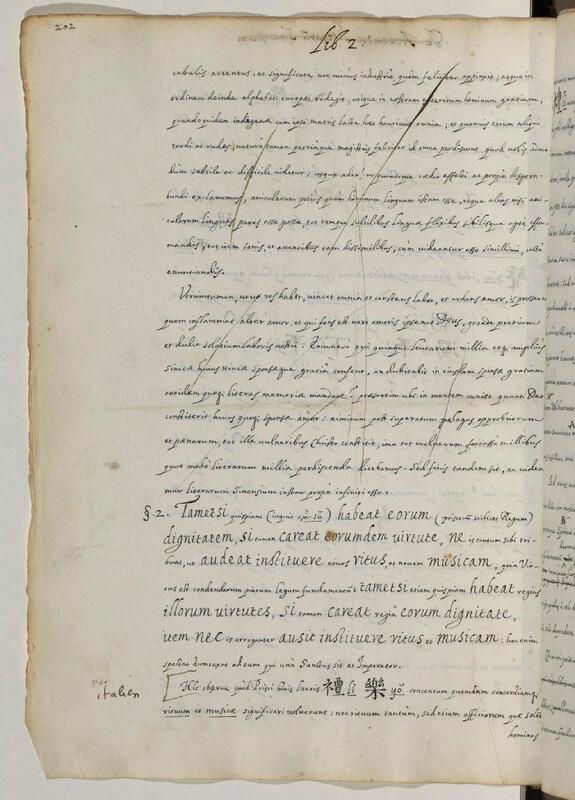 202
Lib. 2.
cabulis accentus, et significata non minus industrie quàm feliciter appinxit; atque in
ordinem deinde alphabeti europæi redegit, usique in nostram exterorum hominum gratiam;
quandoquidem indigenæ cum ipso matris lacte hæc hauriunt omnia; et quamvis eorum aliqui
tardi ac rudes, natura tamen patriaque magistris feliciter id omne perdiscunt, quod nobis admo
dùm subtile ac difficile videtur; usque adeò, ut tædio affecti ac propè despera
bundi exclamemus, avicularum potiùs quàm hominum linguam istam esse, neque alias nisi avi
cularum linguas pares esse posse, tot tamque subtilibus linguæ flexibus sibilisque aptè effor
mandis, tot item sonis, et accentibus tam dissimilibus, cùm videantur esse simillimi, ritè
enunciandis.
Verumtamen, uti res habet, vincet omnia et constans labor, et ardens amor, is præsertim
quem inflammat alter amor, et qui fons est veri amoris ipsemet Deus, grande pretium
et dulce solatium laboris nostri. Enimvero qui quinque leucarum millia et amplius
sinicæ hujus vineæ sponsæque gratiâ confecit, an dubitabit in ejusdem sponsæ gratiam
totidem quoque literas memoriæ mandare? præsertim ubi in mentem venit quanti Deo
constiterit hujus quoque sponsæ amor: nimirum post superatum pelagus opprobriorum
et pœnarum, tot illa vulneribus Christo constitit, imo tot vulnerum fortasse millibus
quot modò literarum millia perdiscenda dicebamus. Sed finis tandem sit, ne videa
mur literarum Sinensium instar propè infiniti esse.
§. 2. Tametsi quispiam (inquit çu-su) habeat eorum (priscorum scilicet Regum)
dignitatem, si tamen careat eorumdem virtute, ne is tamen sibi tri-
buat, ut audeat instituere novos ritus et novam musicam, quia Vir-
tus est condendarum piarum legum fundamentum: tametsi etiam quispiam habeat regias
illorum virtutes, si tamen careat regiâ eorum dignitate,
item nec is arroganter ausit instituere ritus et musicam: hoc enim
spectat dumtaxat ad eum qui unà Sanctus sit et Imperator.
italien
Hîc observa quòd Prisci binis literis 禮 li 樂 yŏ concentum quemdam concordiamque
rituum et musicæ significari voluerunt: nec rituum tantùm, sed etiam officiorum quæ solent
homines